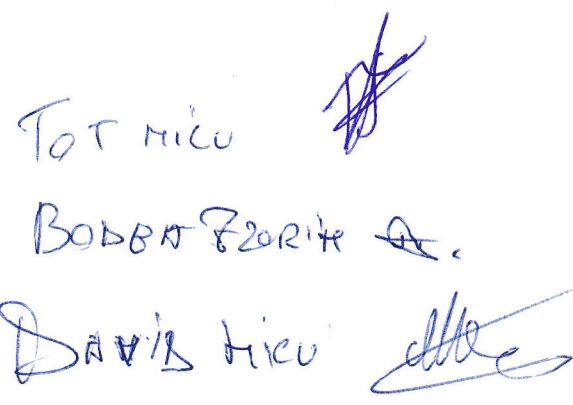 TOT MICU
BODEA FLORIN
DAVID MICU